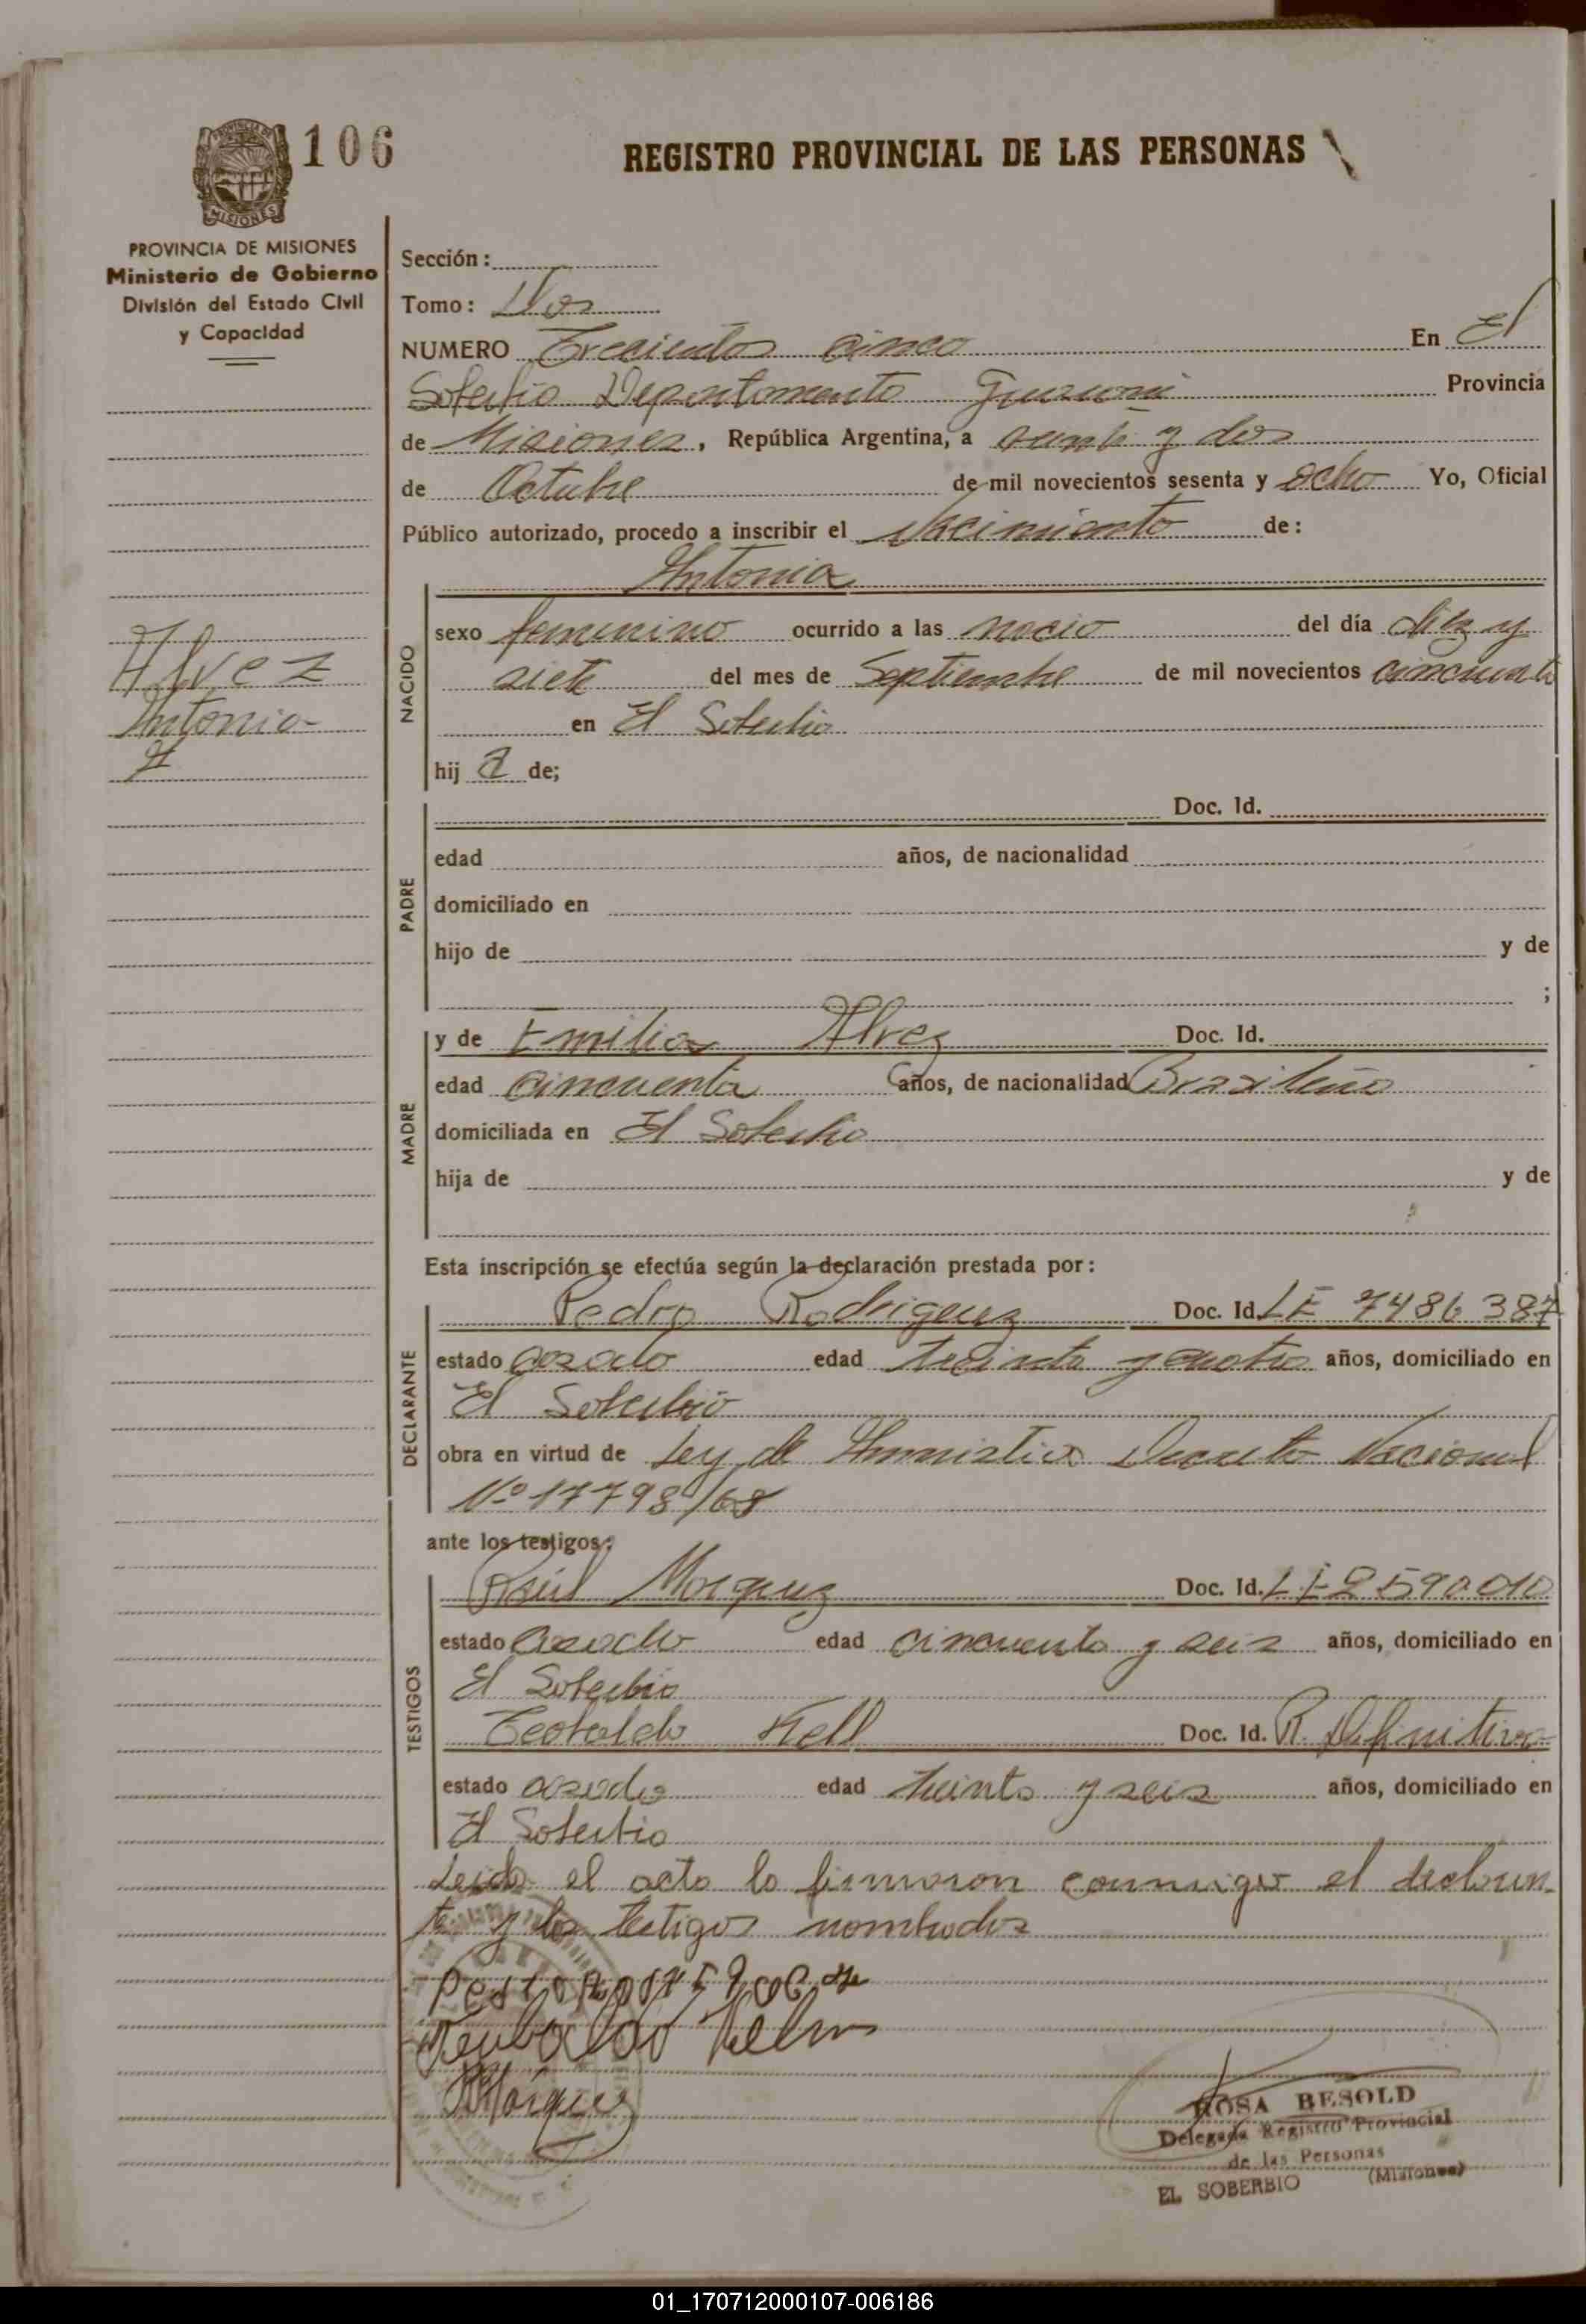 106
REGISTRO PROVINCIAL DE LAS PERSONAS
PROVINCIA DE
MISIONES
PROVINCIA DE MISIONES
Ministerio de Gobierno
División del Estado Civil
y Capacidad
Alvez
Antonia
Sección:
Tomo: Dos
NUMERO Treciento cinco En El
Soberbio Departamento Guarani Provincia
de Misiones, República Argentina, a veinte y dos
de Octubre de mil novecientos sesenta y ocho Yo, Oficial
Público autorizado, procedo a inscribir el Nacimiento de:
NACIDO
Antonia
sexo femenino ocurrido a las nacio del día diez y
siete del mes de Septiembre de mil novecientos cincuenta
en El Soberbio
hij a de;
PADRE
Doc. Id.
edad años, de nacionalidad
domiciliado en
hijo de y de
;
MADRE
y de Emilia Alvez Doc. Id.
edad cincuenta años, de nacionalidad Brasileña
domiciliada en El Soberbio
hija de y de
Esta inscripción se efectúa según la declaración prestada por:
DECLARANTE
Pedro Rodriguez Doc. Id. LE 7486387
estado casado edad treinta y cuatro años, domiciliado en
El Soberbio
obra en virtud de Ley de Amnistia Decreto Nacional
Nº 17798/68
ante los testigos:
TESTIGOS
Raúl Marquez Doc. Id. LE 2590010
estado casado edad cincuenta y seis años, domiciliado en
El Soberbio
Teobaldo Kell Doc. Id. R. Definitiva
estado casado edad treinta y seis años, domiciliado en
El Soberbio
Leida el acta la firmaron conmigo el declaran-
te y los testigos nombrados
RMárquez
ROSA BESOLD
Delegada Registro Provincial
de las Personas
EL SOBERBIO (Misiones)
01_170712000107-006186